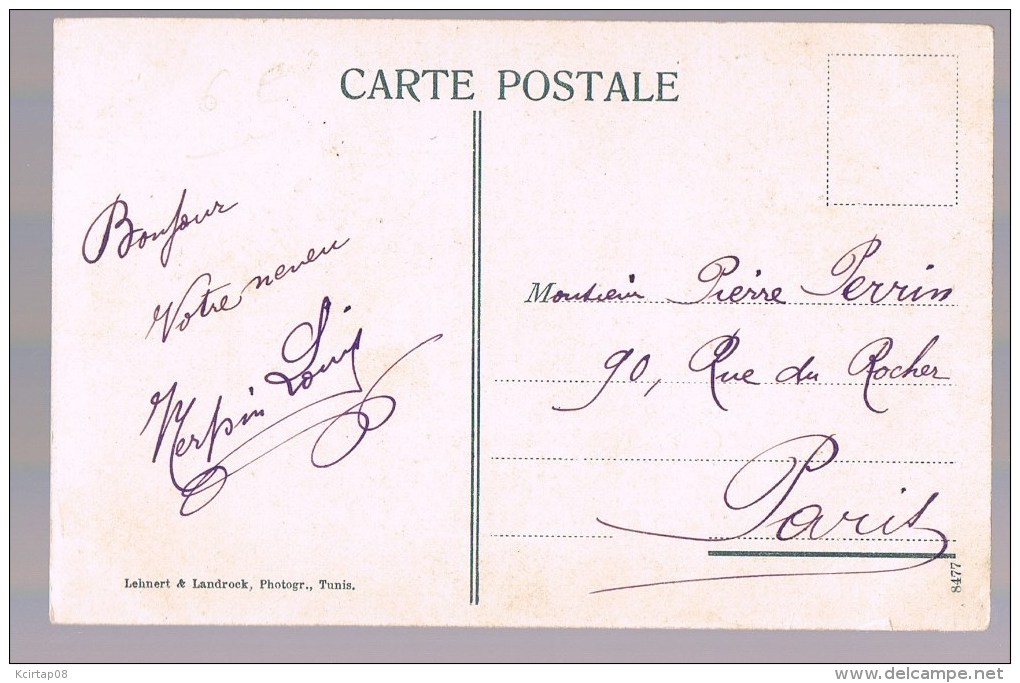 CARTE POSTALE
Bonjour
Votre neveu
Louis
Monsieur Pierre Perrin
90, Rue du Rocher
Paris
Lehnert & Landrock, Photogr., Tunis.
8477
Kcirtap08
delcampe.net